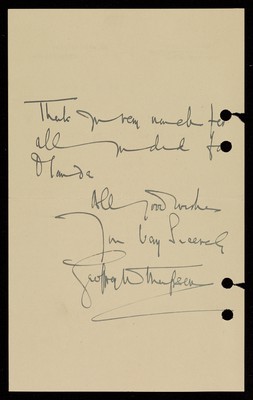 Thank you very much for
all you did for
Manda
All good wishes
Yours Very Sincerely
Geoffrey W Thompson